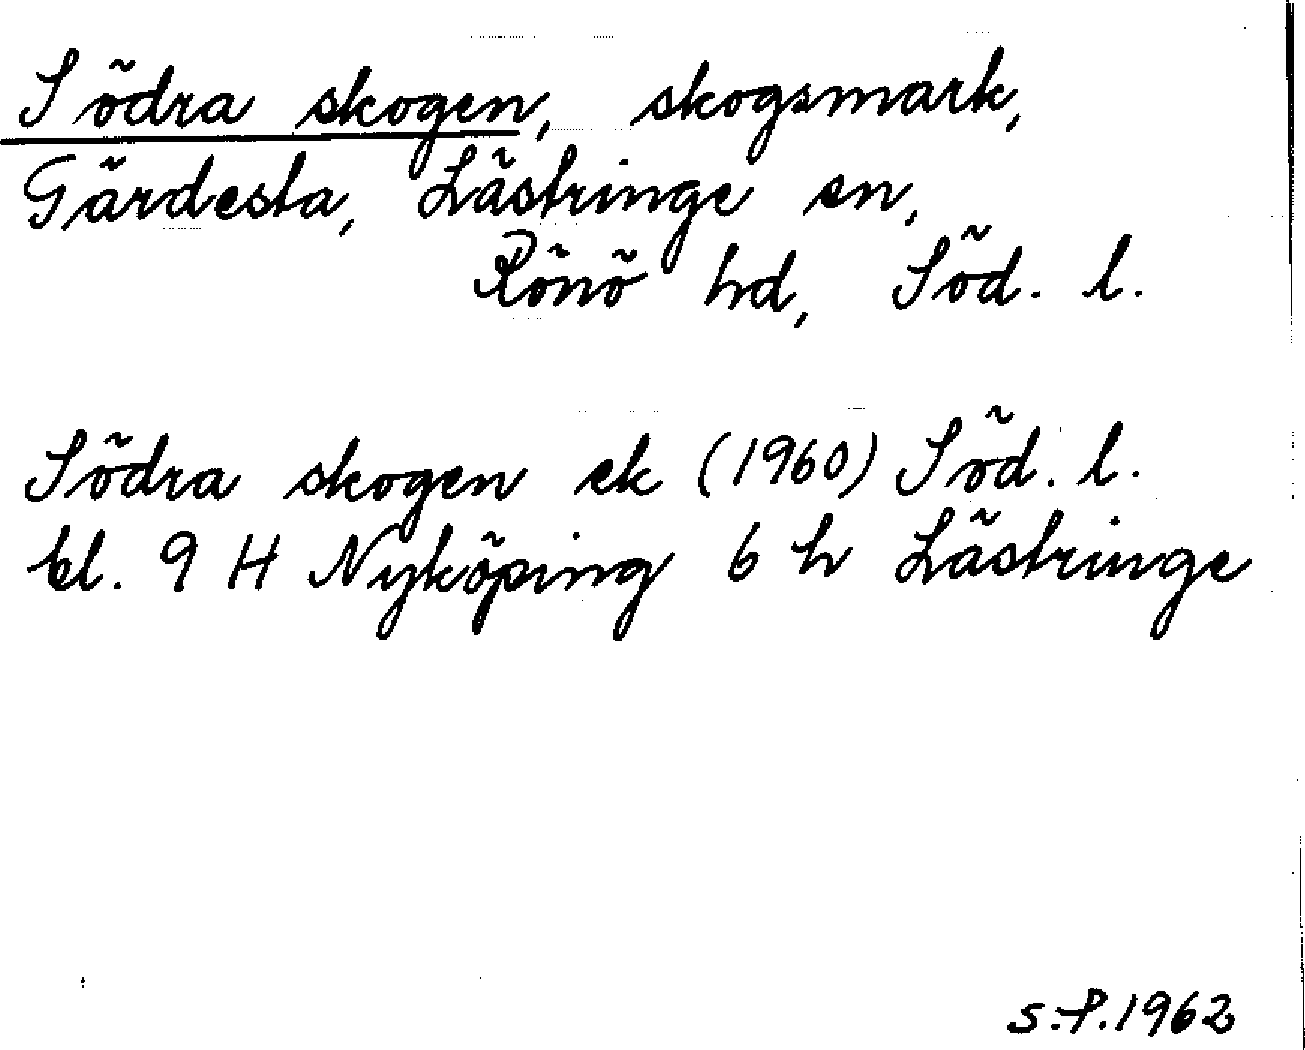 Södra skogen, skogsmark,
Gärdesta, Lästringe sn,
Rönö hd, Söd. l.
Södra skogen ek (1960) Söd. l.
bl. 9 H Nyköping 6 h Lästringe
S.P. 1962